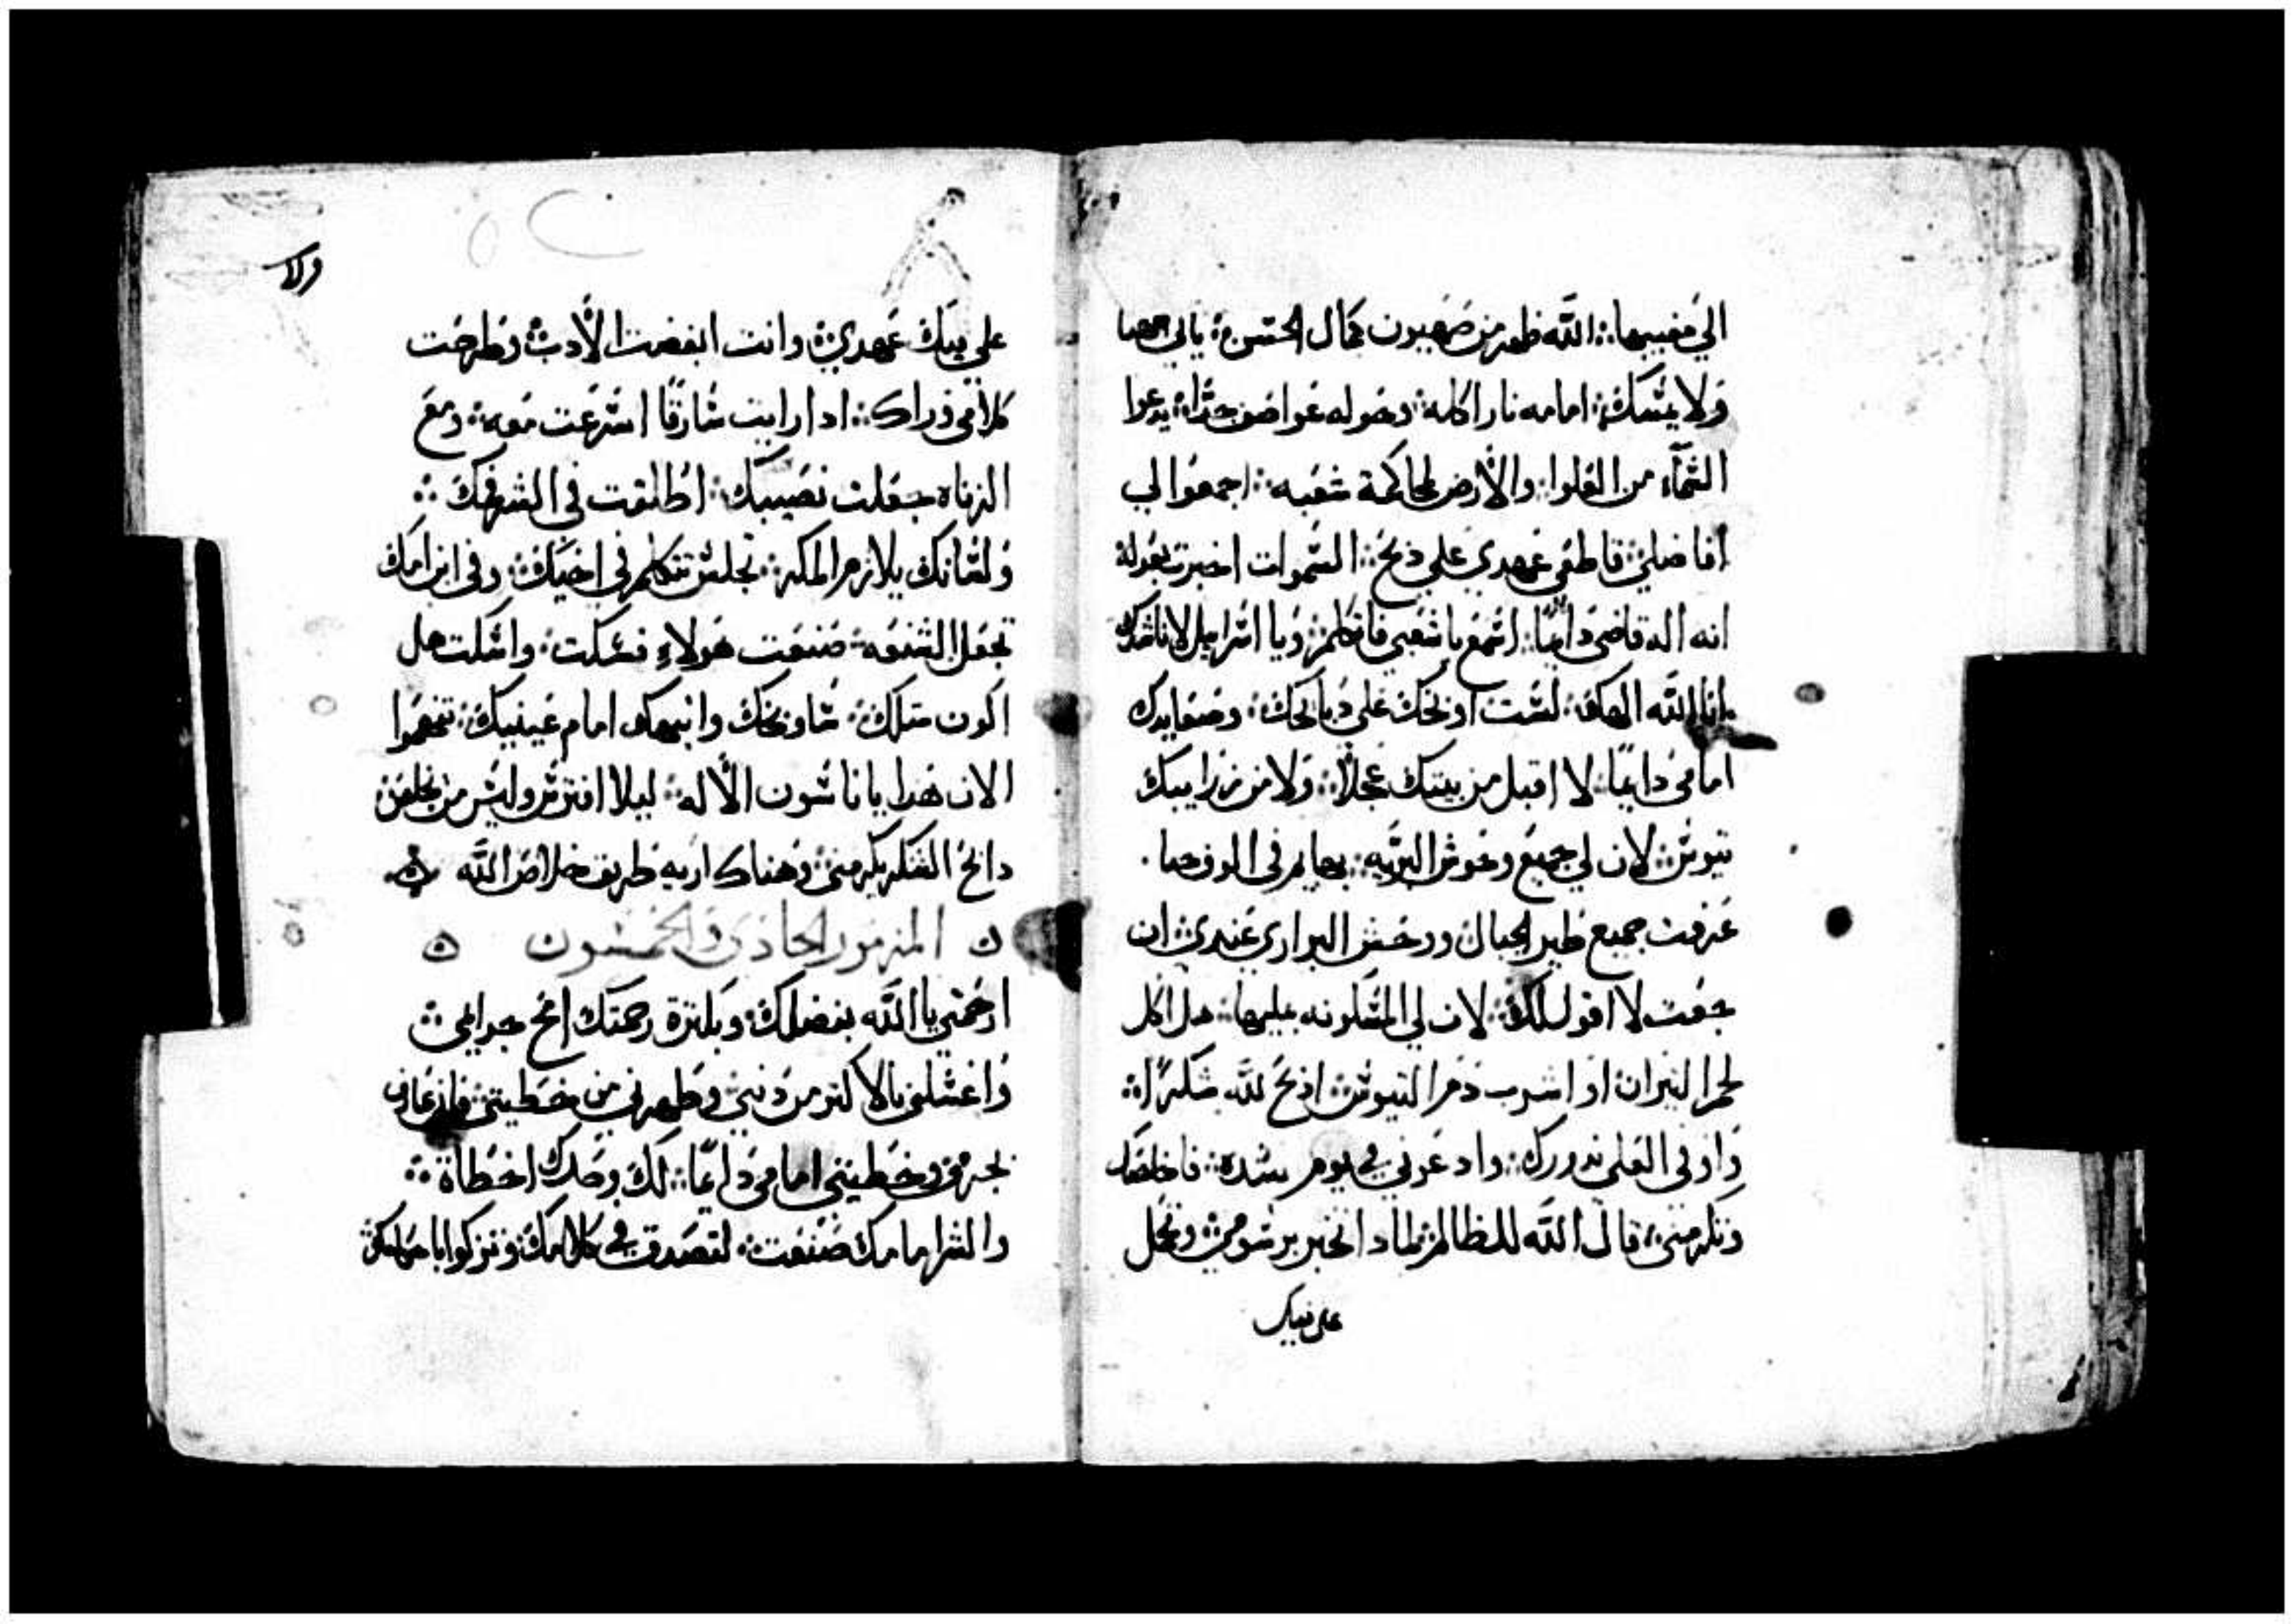 الي مغيبها ۞ الله ظهر من صهيون كمال الحسن ۞ ياتي الهنا
ولا يسكت ۞ امامه نارا اكله ۞ وحوله عواصف جدا ۞ يدعوا
السماء من العلوا ۞ والارض لمحاكمة شعبه ۞ اجمعوا لي
افاضلي ۞ قاطعي عهدي علي ذبح ۞ السموات اخبرت بعدله
انه اله قاضي دايما ۞ اسمع يا شعبي فاتكلم ۞ ويا اسراييل لاناشدك
انا الله الهك ۞ لست اوبخك علي دبايحك ۞ وصعايدك
امامي دايما ۞ لا اقبل من بيتك عجلا ۞ ولا من زرايبك
تيوس ۞ لان لي جميع وحوش البريه ۞ بهايم في الوفها ۞
عرفت جميع طير الجبال ووحش البراري عندي ۞ ان
جعت لا اقول لك ۞ لان لي المسكونه بمليها ۞ هل اكل
لحم التيران او اشرب دم التيوس ۞ ادبح لله شكرا ۞
واوفي العلي ندورك ۞ وادعوني في يوم شده ۞ فاخلصك
وتكرمني ۞ قال الله للظالم لمادا تخبر برسومي ۞ وتحمل
علي فيك
ولا
علي فيك عهدي ۞ وانت ابغضت الادب ۞ وطرحت
كلامي وراك ۞ ادا رايت سارقا اسرعت معه ۞ ومع
الزناه جعلت نصيبك ۞ اطلقت في الشر فمك ۞
ولسانك يلازم المكر ۞ تجلس تتكلم في اخيك ۞ وفي ابن امك
تجعل الشنعه ۞ صنعت هولاء فسكت ۞ واسكت هل
اكون متلك ۞ ساوبخك وانبهك امام عينيك ۞ تفهموا
الان هدا يا ناسون الاله ۞ ليلا افترس وليس من يخلص ۞
دابح الشكر يكرمني ۞ وهناك اريه طريق خلاص الله ۞
۞ المزمور الحادي والخمسون ۞
ارحمني يا الله بفضلك ۞ وبكترة رحمتك امح جرايمي ۞
واغسلني بالاكتر من دنبي ۞ وطهرني من خطيتي ۞ فاني عارف
بجرمي وخطيتي امامي دايما ۞ لك وحدك اخطاة ۞
والشر امامك صنعت ۞ لتصدق في كلامك ۞ وتزكوا بمحاكمتك